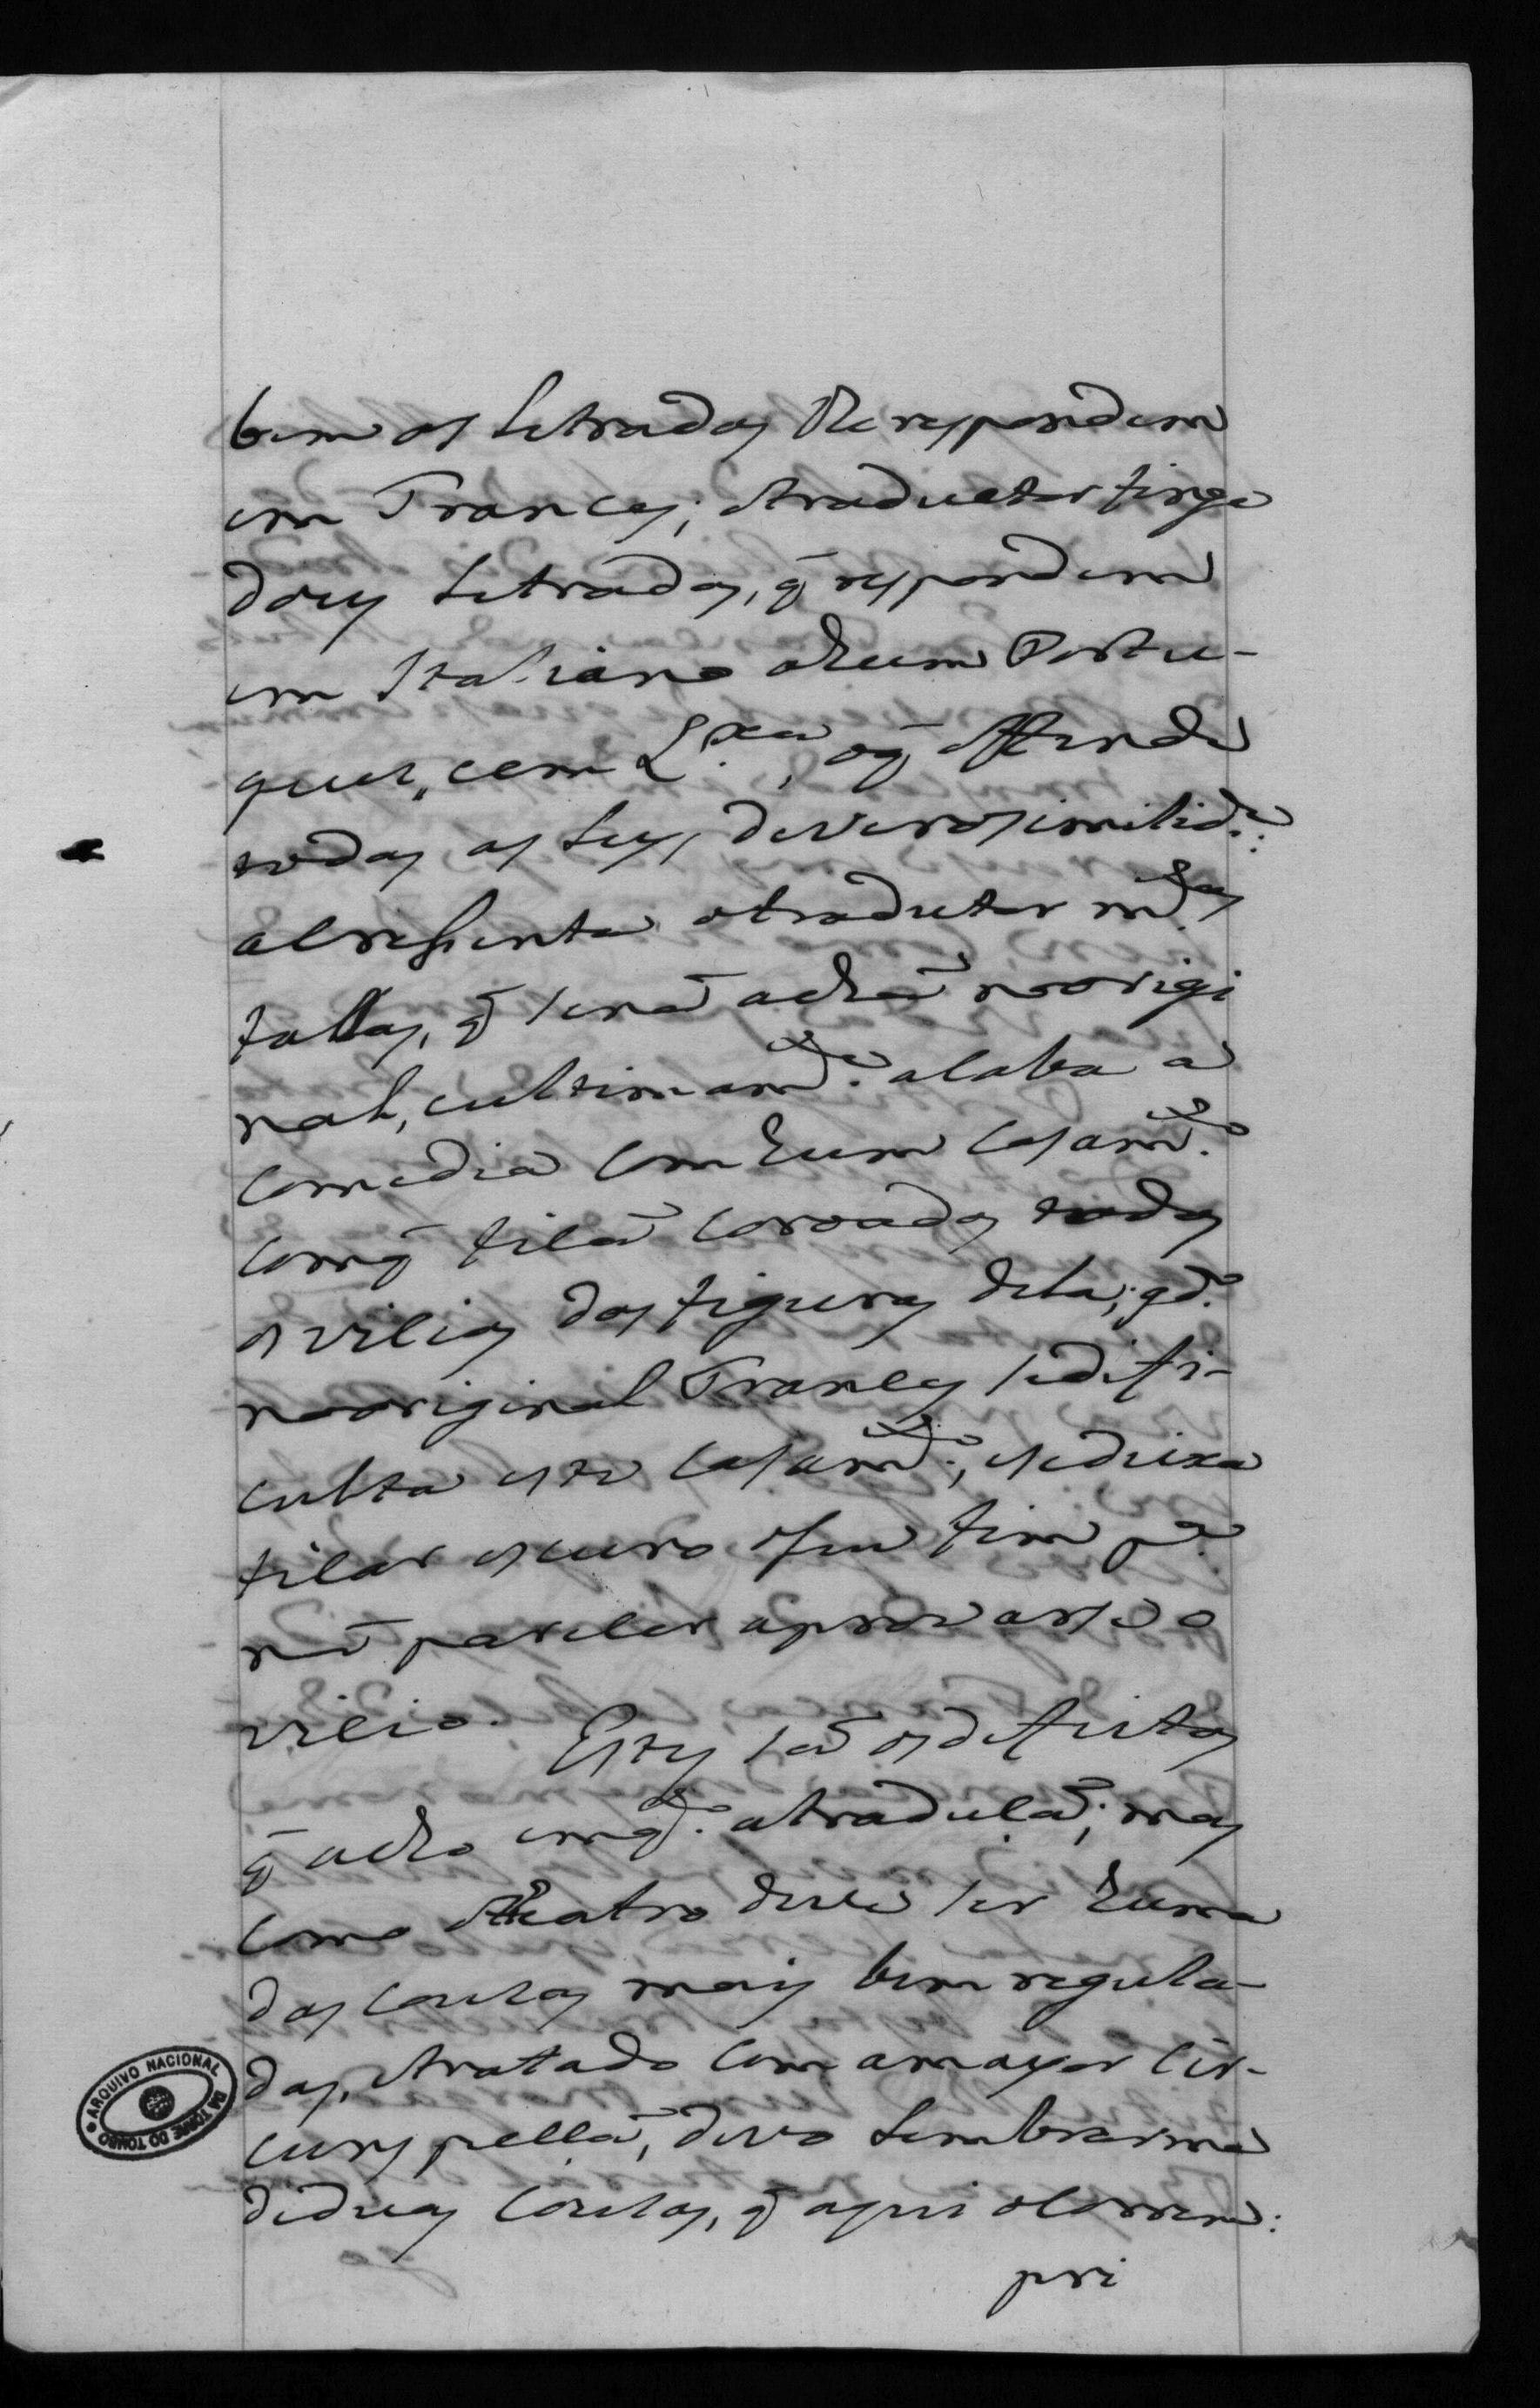 bem os Letrados lhe respondem
em Frances; o traductor finge
dous Letrados, q̃ respondem
em Italiano a hum Portu-
guez, e em Lx.ª, o q̃ offende
todas as Leys, de verosimilid.e:
acrescenta o tradutor m.tas
fallas, q̃ se naõ achaõ no origi
nal, e ultimam.te acaba a
comedia com hum casam.to
com q̃ ficaõ coroados todos
os vicios das figuras dela; qd.o
no original Frances se difi-
culta este casam.to, e se deixa
ficar escuro o seu fim p.a
naõ parecer aprovarse o
vicio. Estes saõ os defeitos
q̃ acho emq.to a traduçaõ; mas
como o Theatro deve ser huma
das couzas mais bem regula-
das, e tratado com a mayor cir-
cunspecçaõ, devo lembrarme
de duas couzas, q̃ aqui ocorrem:
pri
ARQUIVO NACIONAL DA TORRE DO TOMBO